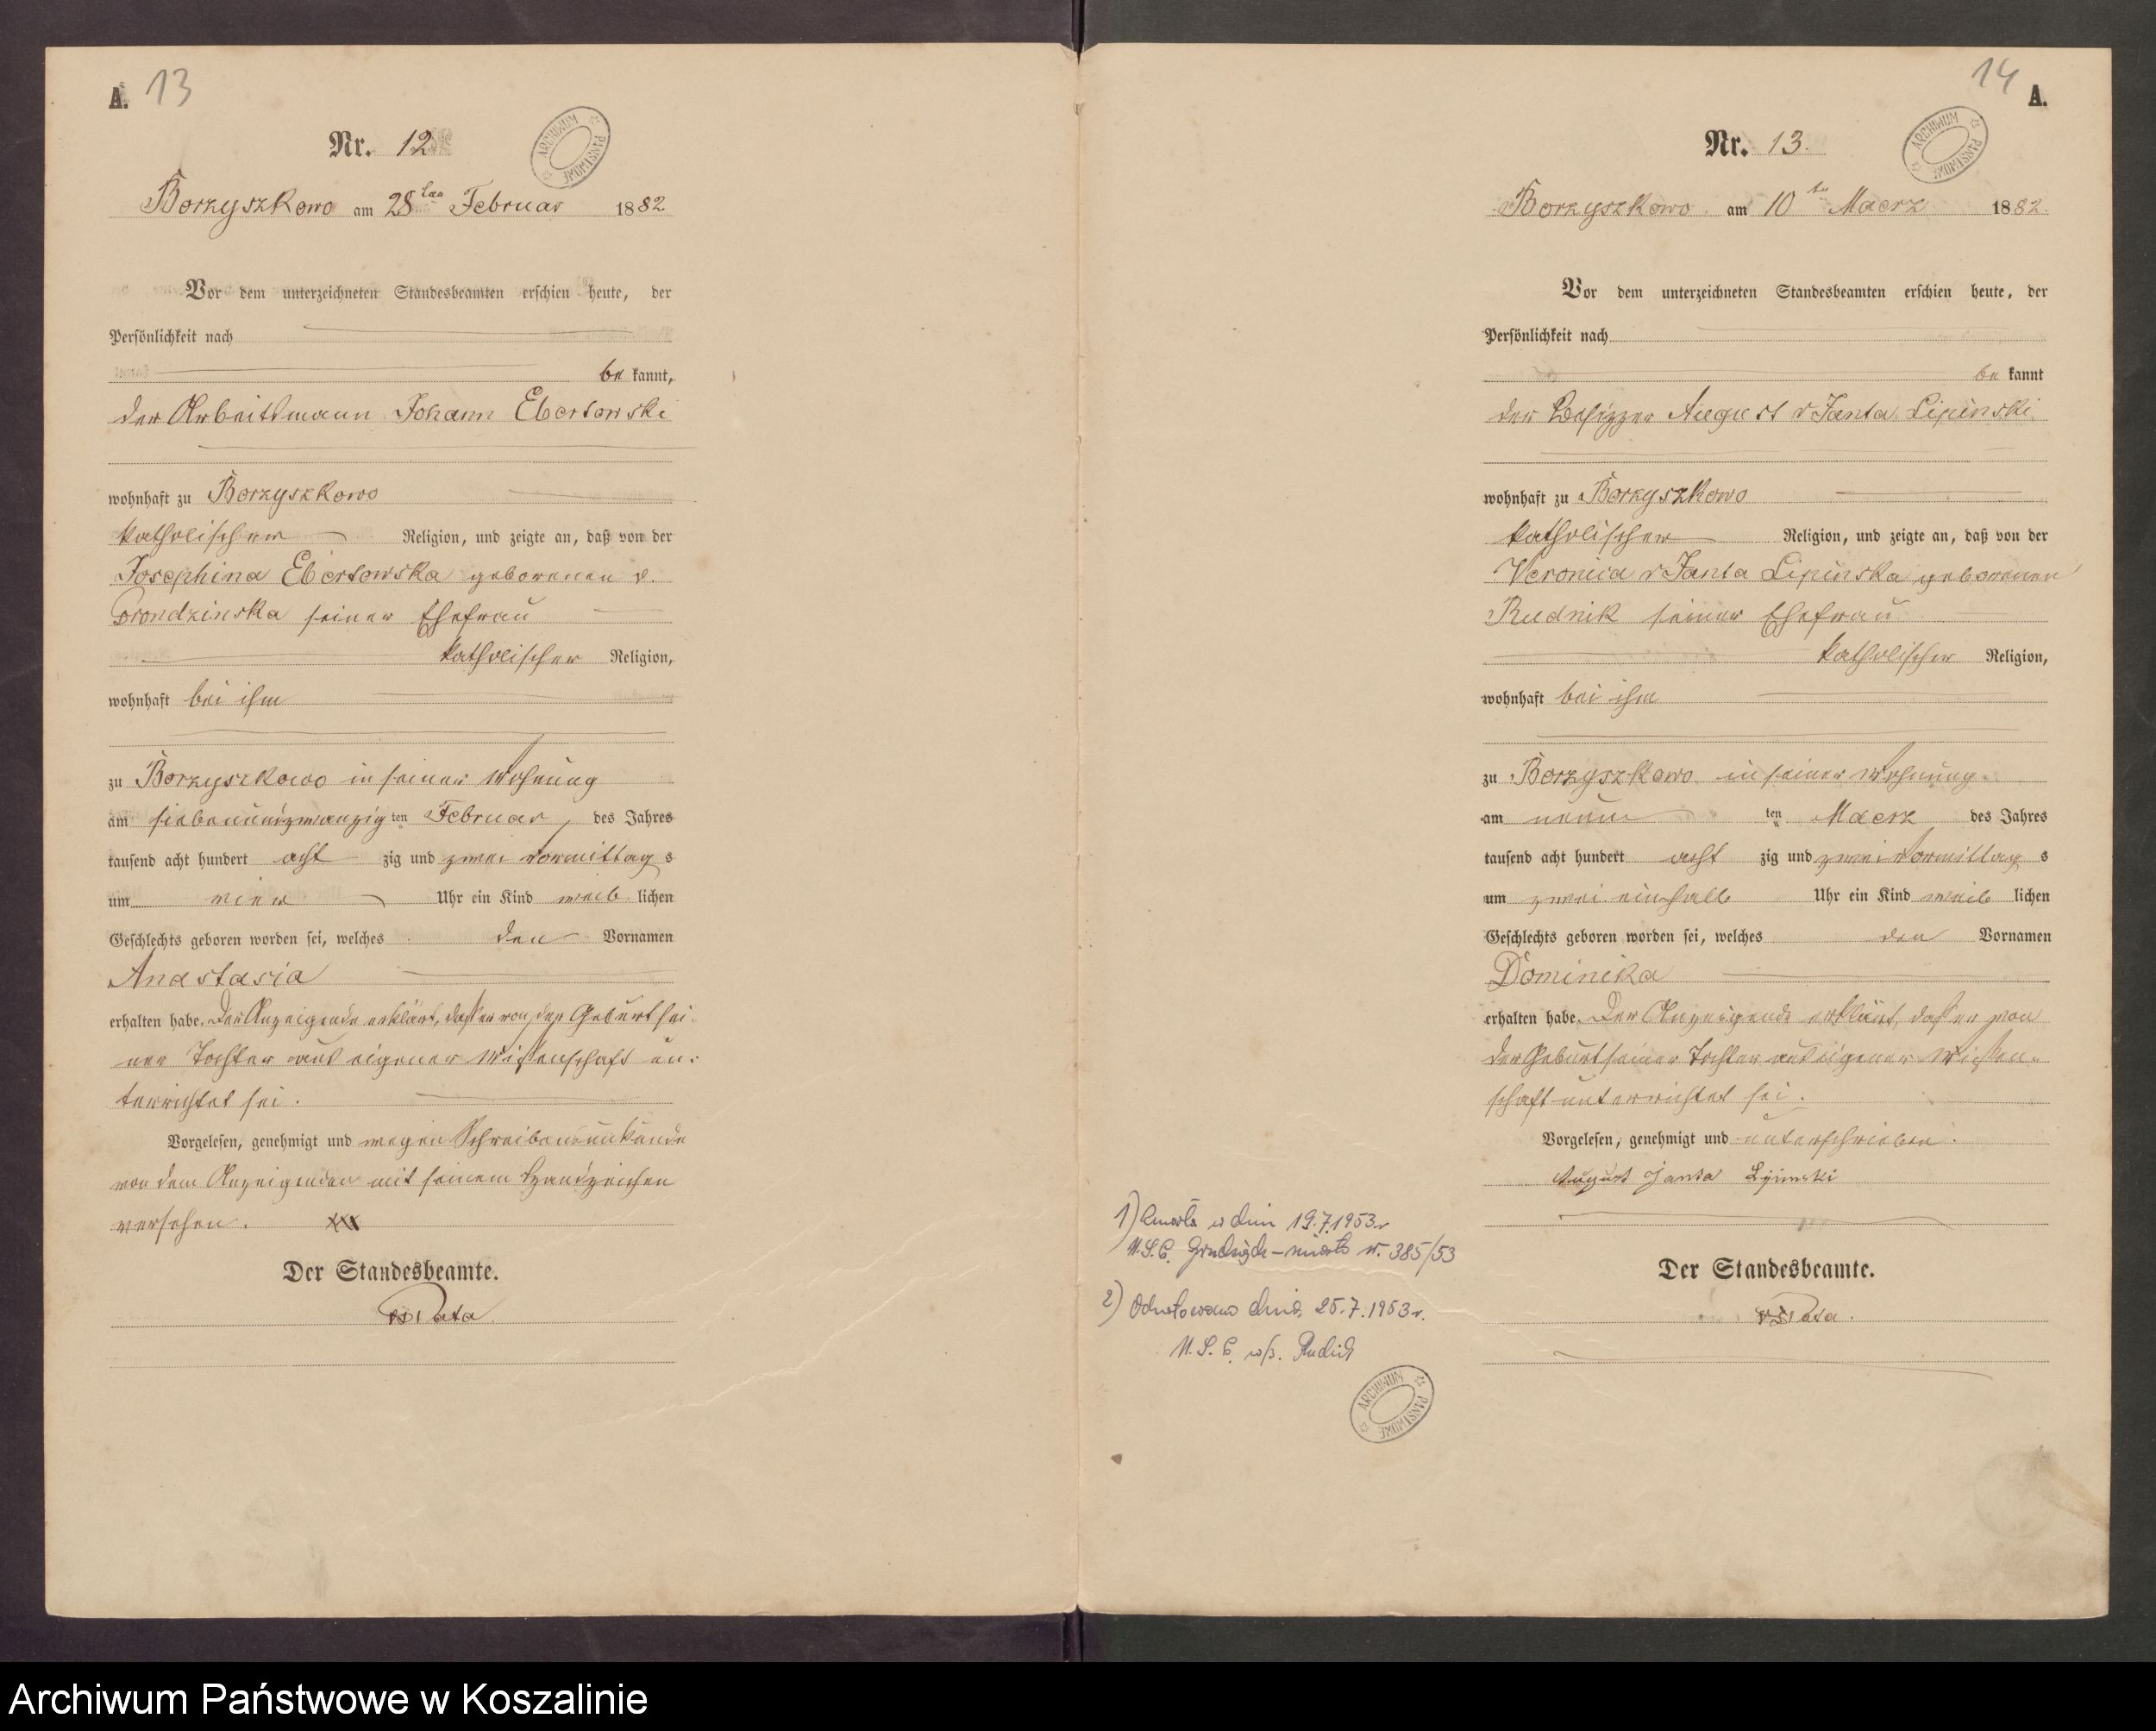 A. 13
Nr. 12
Borzyszkowo am 28ten Februar 1882
ARCHIWUM PAŃSTWOWE
Vor dem unterzeichneten Standesbeamten erschien heute, der
Persönlichkeit nach
be kannt,
der Arbeitsmann Johann Ebertowski
wohnhaft zu Borzyszkowo
katholischer Religion, und zeigte an, daß von der
Josephina Ebertowska geborenen v.
Prondzinska seiner Ehefrau
katholischer Religion,
wohnhaft bei ihm
zu Borzyszkowo in seiner Wohnung
am siebenundzwanzig ten Februar, des Jahres
tausend acht hundert acht zig und zwei Vormittag s
um vier Uhr ein Kind weib lichen
Geschlechts geboren worden sei, welches den Vornamen
Anastasia
erhalten habe. Der Anzeigende erklärt, daß er von der Geburt sei-
ner Tochter aus eigener Wissenschaft un-
terrichtet sei.
Vorgelesen, genehmigt und wegen Schreibensunkunde
von dem Anzeigenden mit seinem Handzeichen
versehen. xxx
Der Standesbeamte.
14 A.
Nr. 13.
ARCHIWUM PAŃSTWOWE
Borzyszkowo am 10ten Maerz 1882.
Vor dem unterzeichneten Standesbeamten erschien heute, der
Persönlichkeit nach
be kannt
der Besitzer August v Janta Lipinski
wohnhaft zu Borzyszkowo
katholischer Religion, und zeigte an, daß von der
Veronica v Janta Lipinska geborenen
Rudnik seiner Ehefrau
katholischer Religion,
wohnhaft bei ihm
zu Borzyszkowo in seiner Wohnung
am neun ten Maerz des Jahres
tausend acht hundert acht zig und zwei Vormittag s
um zwei einhalb Uhr ein Kind weib lichen
Geschlechts geboren worden sei, welches den Vornamen
Dominika
erhalten habe. Der Anzeigende erklärt, daß er von
der Geburt seiner Tochter aus eigener Wissen-
schaft unterrichtet sei.
Vorgelesen, genehmigt und unterschrieben.
August Janta Lipinski
Der Standesbeamte.
1) Zmarła w dniu 19.7.1953r
U.S.C. Grudziądz-miasto nr. 385/53
2) Odnotowano dnia 25.7.1953r.
U.S.C.
ARCHIWUM PAŃSTWOWE
Archiwum Państwowe w Koszalinie